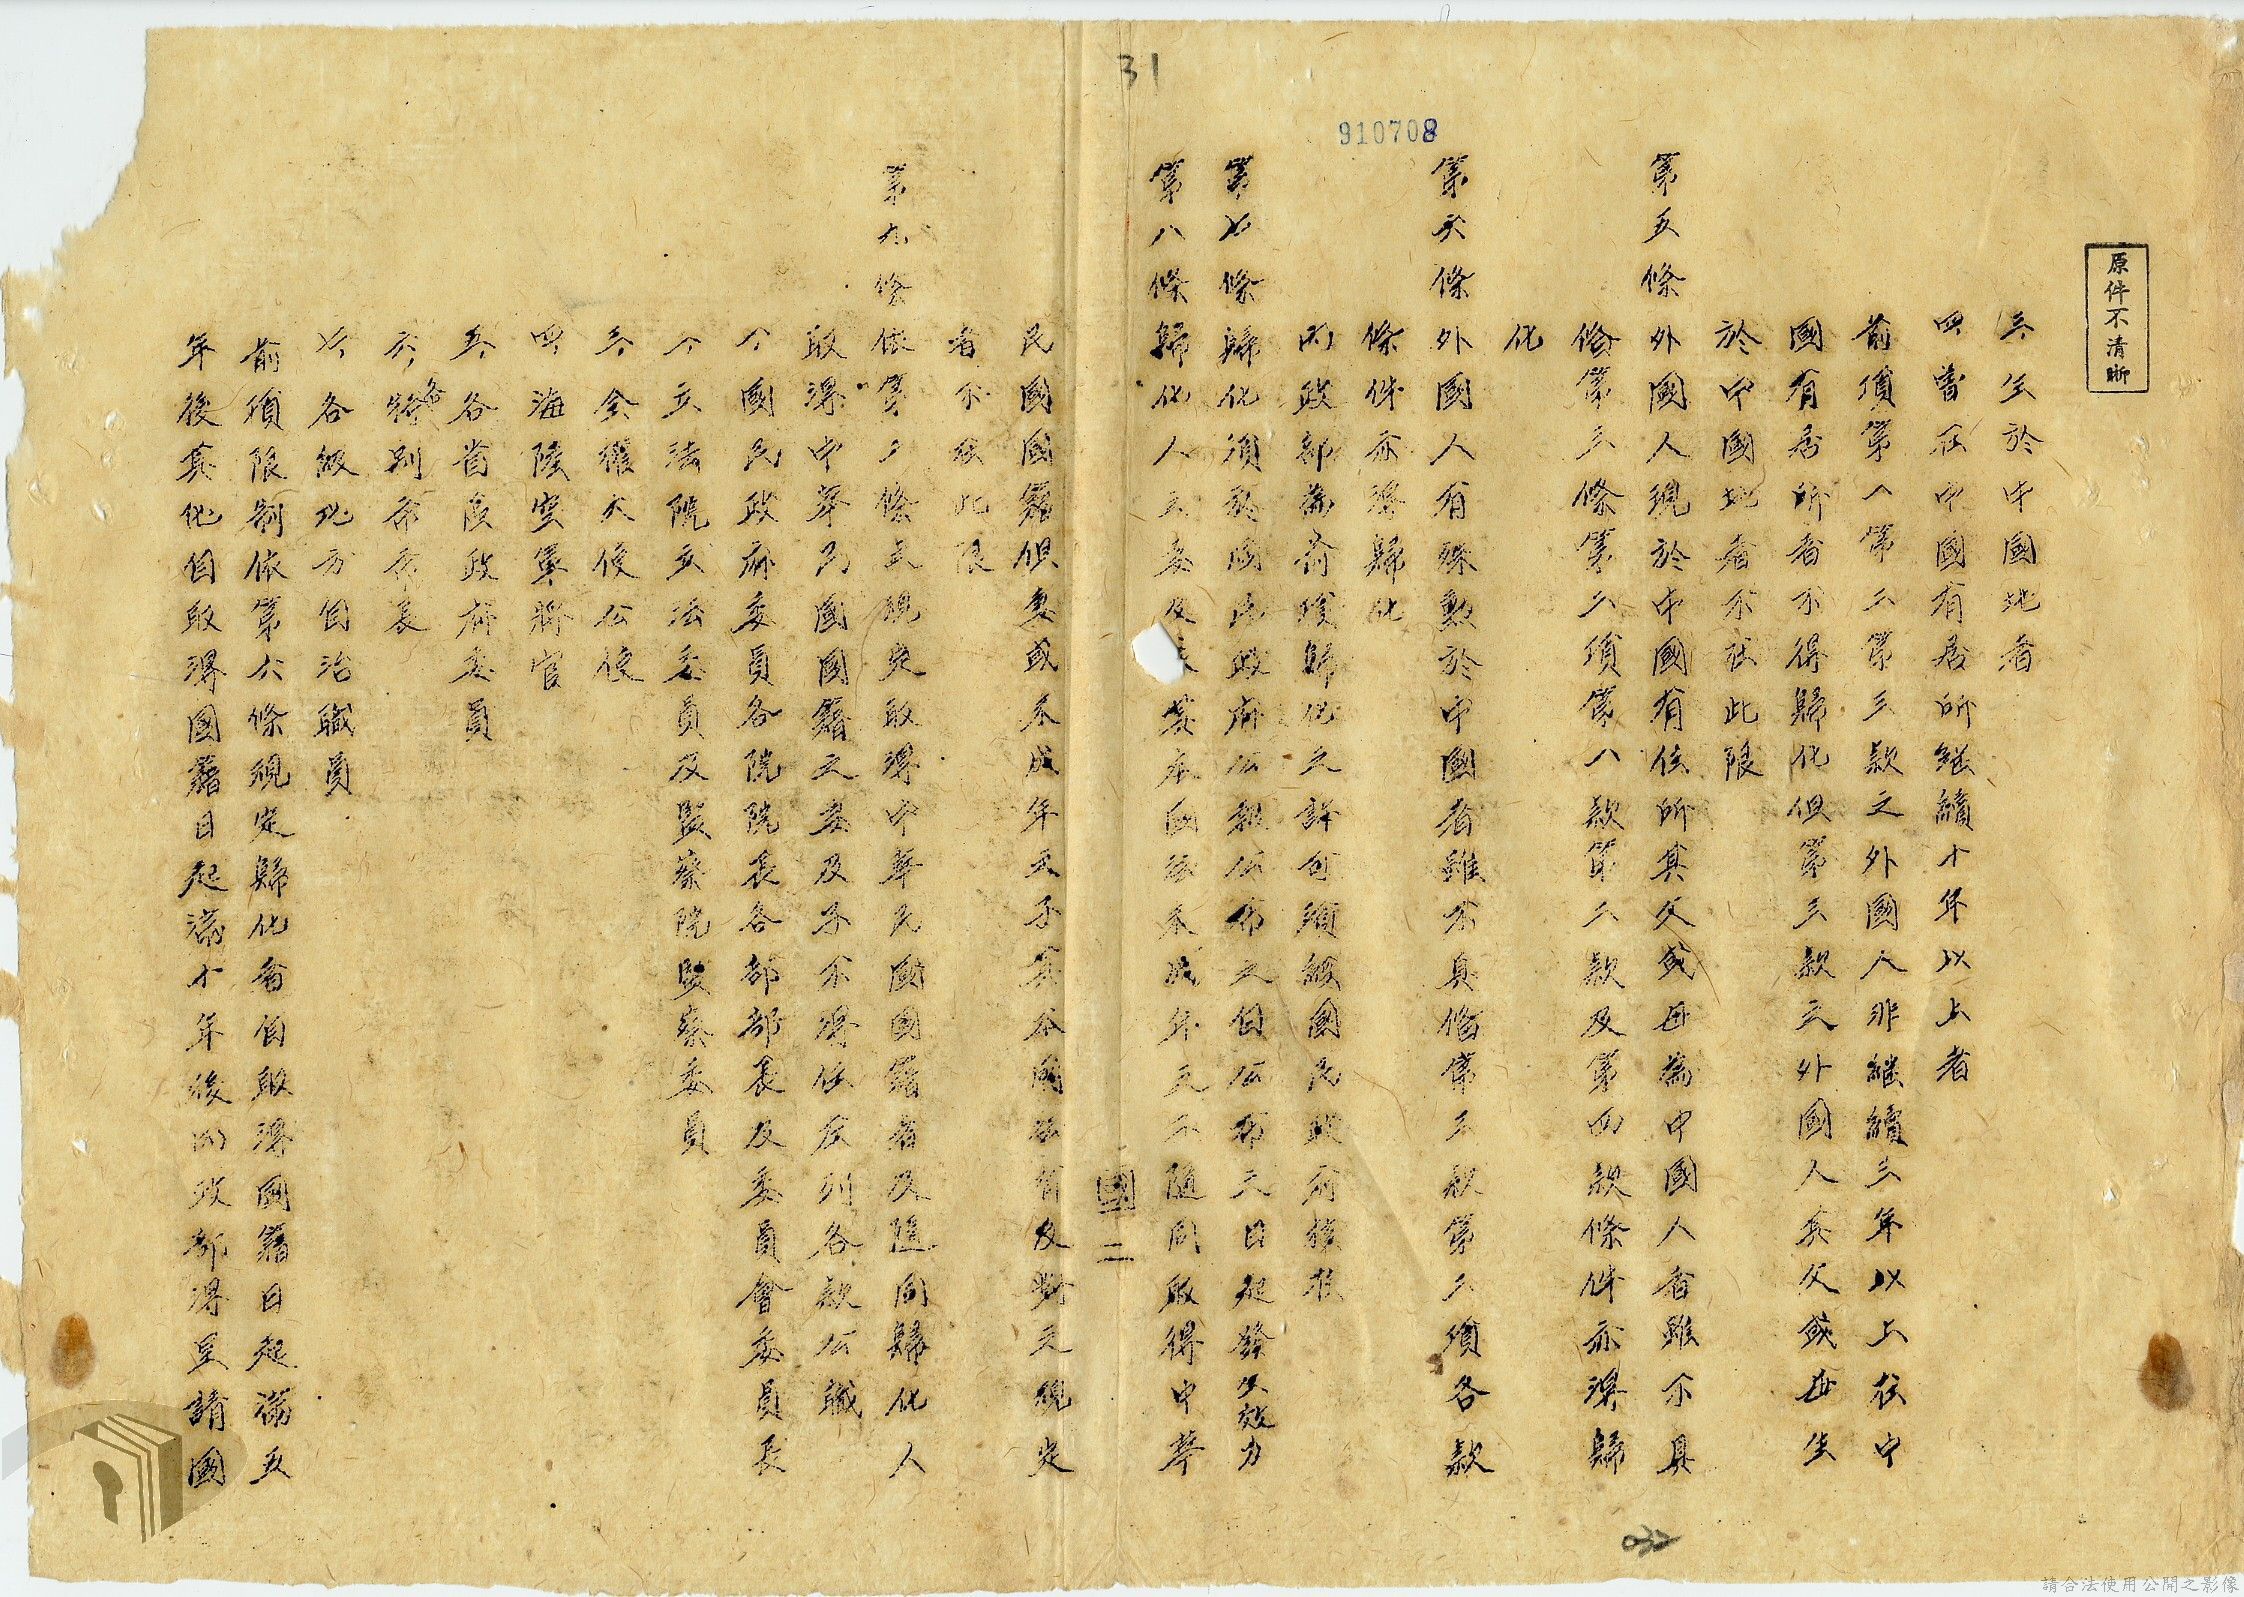 31
910708
原件不清晰
三、生於中國地者
四、曾在中國有居所繼續十年以上者
前項第一第二第三款之外國人非繼續三年以上在中
國有居所者不得歸化但第三款之外國人其父或母生
於中國地者不在此限
第五條 外國人現於中國有住所其父或母為中國人者雖不具
備第三條第二項第一款第二款及第四款條件亦得歸
化
第六條 外國人有殊勲於中國者雖不具備第三條第二項各款
條件亦得歸化
內政部為前項歸化之許可須經國民政府核准
第七條 歸化須於國民政府公報公布之自公布之日起發生效力
第八條 歸化人之妻及其本國法未成年之子隨同取得中華
民國國籍但妻或未成年之子其本國法有反對之規定
者不在此限
國二
第九條 依第二條之規定取得中華民國國籍者及隨同歸化人
取得中華民國國籍之妻及子不得任左列各款公職
一、國民政府委員各院院長各部部長及委員會委員長
二、立法院立法委員及監察院監察委員
三、全權大使公使
四、海陸空軍將官
五、各省區政府委員
六、各特別市市長
七、各級地方自治職員
前項限制依第六條規定歸化者自取得國籍日起滿五
年後其他自取得國籍日起滿十年後內政部得呈請國
請合法使用公開之影像